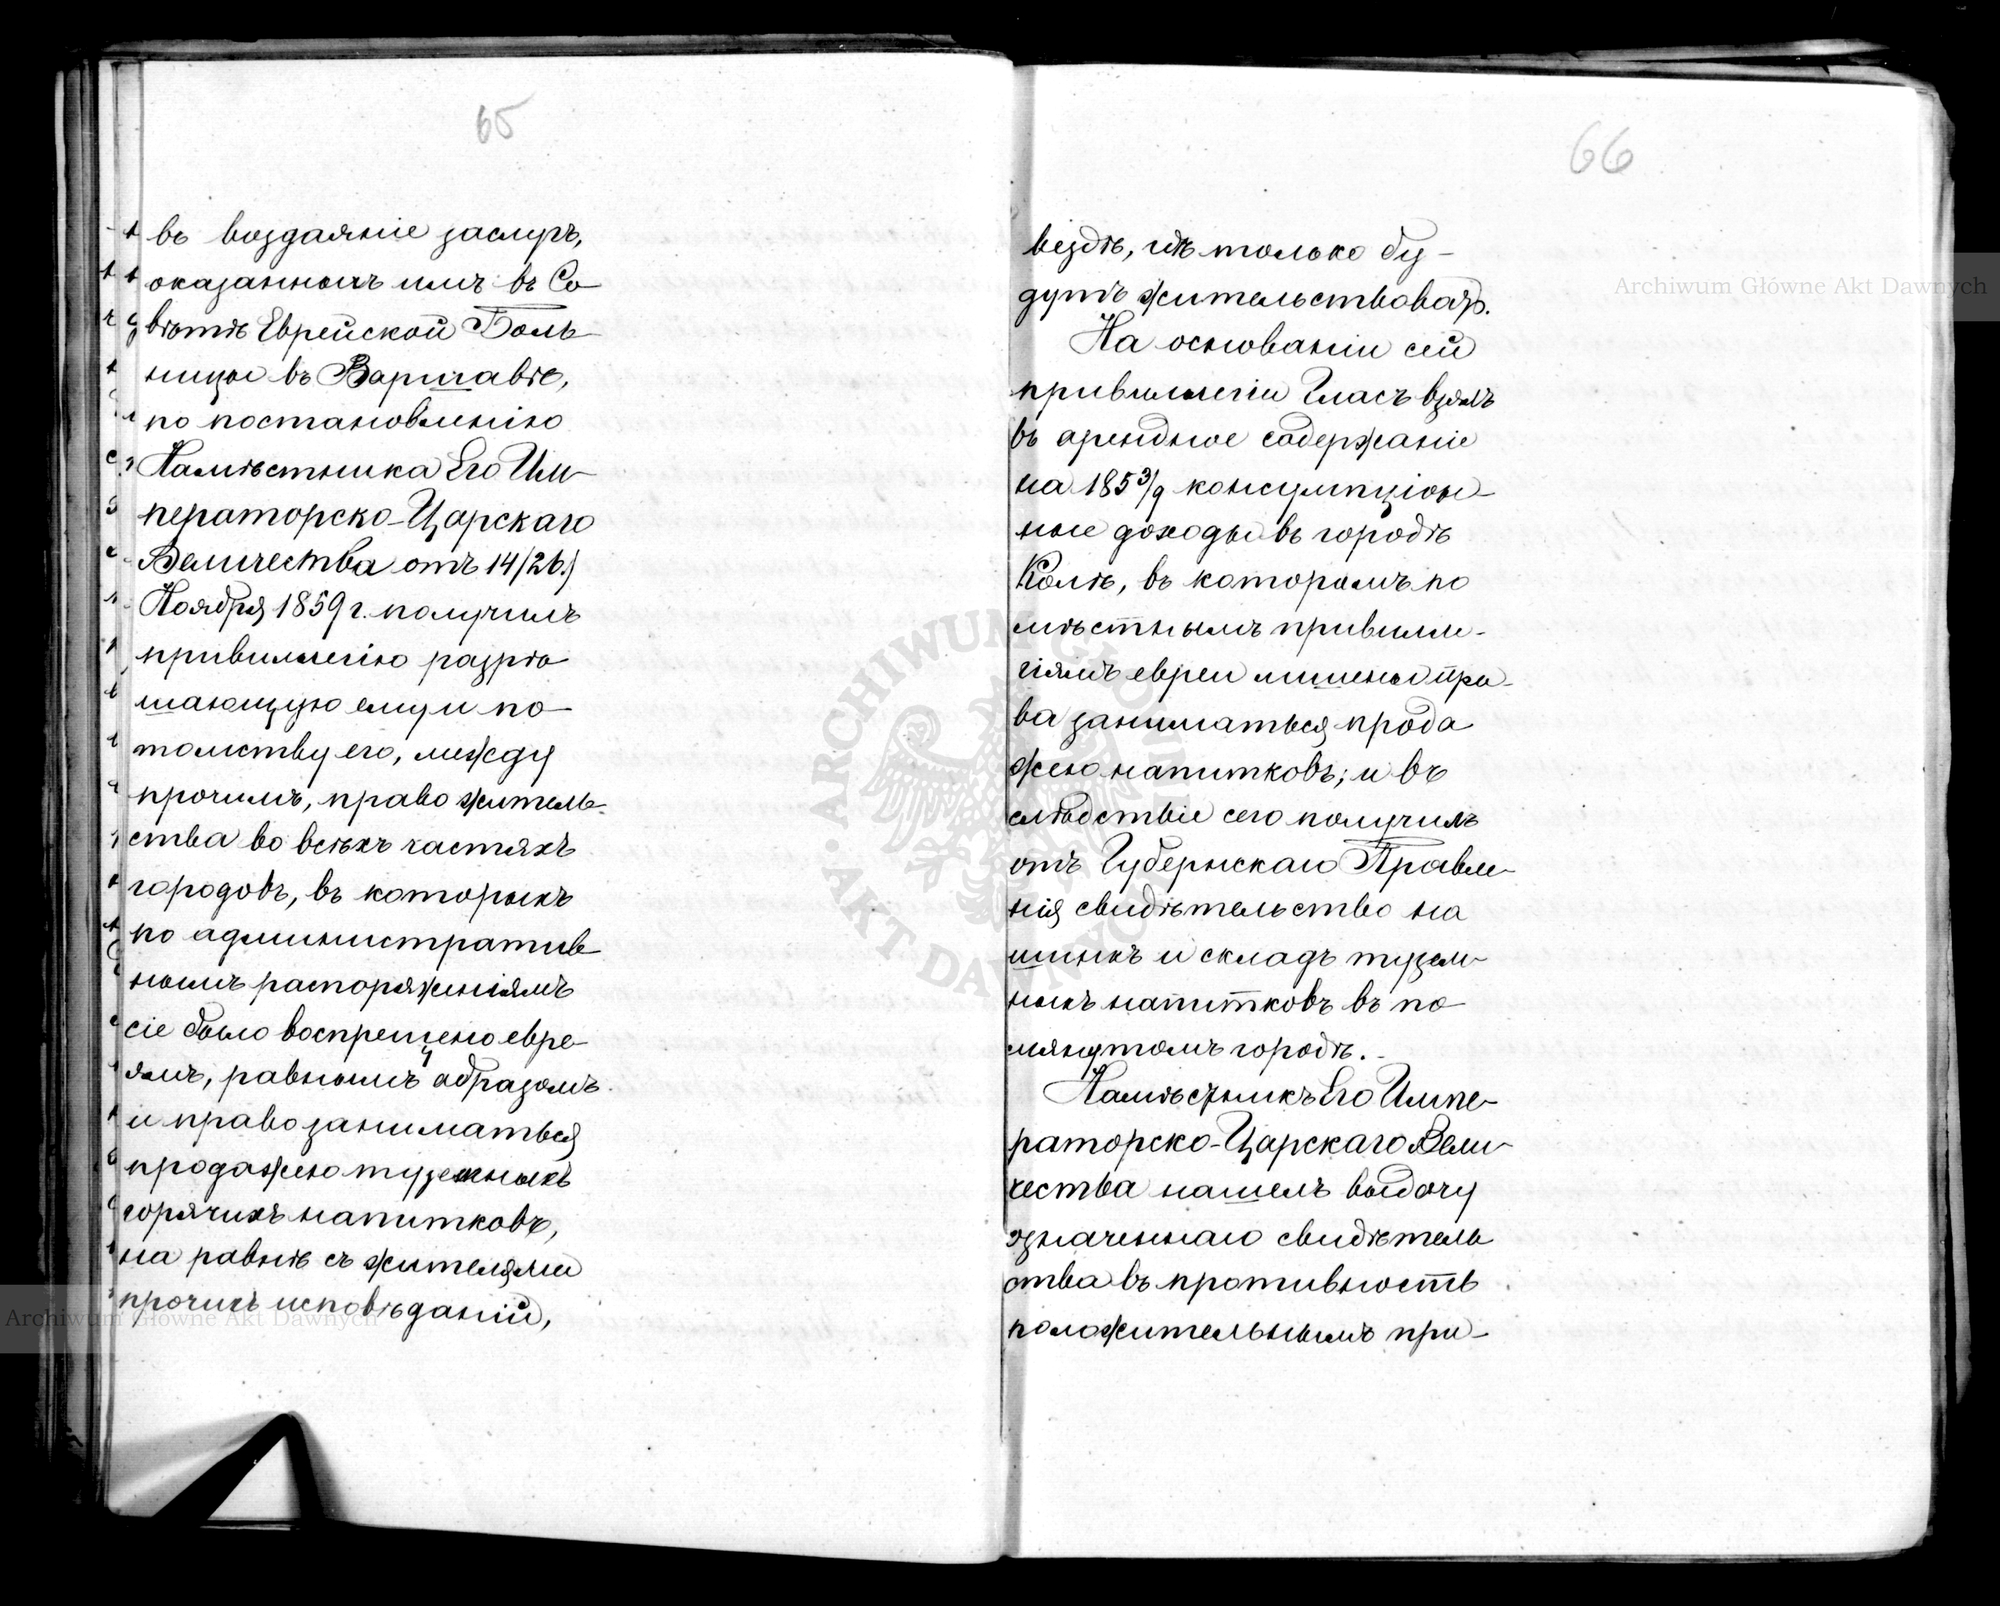 65
въ воздаяніе заслугъ,
оказанныхъ имъ въ Со-
вѣтѣ Еврейской Боль-
ницы въ Варшавѣ,
по постановленію
Намѣстника Его Им-
ператорско-Царскаго
Величества отъ 14/26.)
Ноября 1859 г. получилъ
привиллегію разрѣ-
шающую ему и по-
томству его, между
прочимъ, право житель-
ства во всѣхъ частяхъ
городовъ, въ которыхъ
по административ-
нымъ распоряженіямъ
сіе было воспрещено евре-
ямъ, равнымъ образомъ
и право заниматься
продажею туземныхъ
горячихъ напитковъ,
на равнѣ съ жителями
прочихъ исповѣданій,
66
вездѣ, гдѣ только бу-
дутъ жительствовать.
На основаніи сей
привиллегіи Гласъ взялъ
въ арендное содержаніе
на 1853/9 консумпціон-
ные доходы въ городѣ
Колѣ, въ которомъ по
мѣстнымъ привилле-
гіямъ евреи лишены пра-
ва заниматься прода
жею напитковъ; и въ
слѣдствіе сего получилъ
отъ Губернскаго Правле-
нія свидѣтельство на
шинкъ и складъ тузем-
ныхъ напитковъ въ по-
мянутомъ городѣ.
Намѣстникъ Его Импе-
раторско-Царскаго Вели-
чества нашелъ выдачу
означеннаго свидѣтель
ства въ противность
положительнымъ пра-
Archiwum Główne Akt Dawnych
Archiwum Główne Akt Dawnych
ARCHIWUM GŁÓWNE AKT DAWNYCH